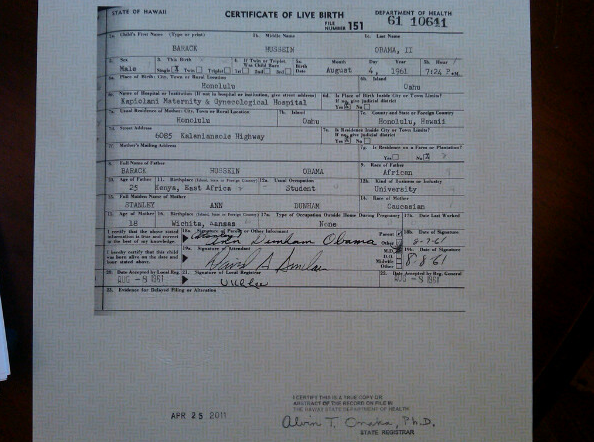 STATE OF HAWAII CERTIFICATE OF LIVE BIRTH DEPARTMENT OF HEALTH
FILE NUMBER 151 61 10641
1a. Child's First Name (Type or print) 1b. Middle Name 1c. Last Name
BARACK HUSSEIN OBAMA, II
2. Sex 3. This Birth 4. If Twin or Triplet, Was Child Born 5a. Birth Date Month Day Year 5b. Hour
Male Single X Twin Triplet 1st 2nd 3rd August 4, 1961 7:24 P.M.
6a. Place of Birth: City, Town or Rural Location 6b. Island
Honolulu Oahu
6c. Name of Hospital or Institution (If not in hospital or institution, give street address) 6d. Is Place of Birth Inside City or Town Limits?
If no, give judicial district
Kapiolani Maternity & Gynecological Hospital Yes X No
7a. Usual Residence of Mother: City, Town or Rural Location 7b. Island 7c. County and State or Foreign Country
Honolulu Oahu Honolulu, Hawaii
7d. Street Address 7e. Is Residence Inside City or Town Limits?
If no, give judicial district
6085 Kalanianaole Highway Yes X No
7f. Mother's Mailing Address 7g. Is Residence on a Farm or Plantation?
Yes No X
8. Full Name of Father 9. Race of Father
BARACK HUSSEIN OBAMA African
10. Age of Father 11. Birthplace (Island, State or Foreign Country) 12a. Usual Occupation 12b. Kind of Business or Industry
25 Kenya, East Africa Student University
13. Full Maiden Name of Mother 14. Race of Mother
STANLEY ANN DUNHAM Caucasian
15. Age of Mother 16. Birthplace (Island, State or Foreign Country) 17a. Type of Occupation Outside Home During Pregnancy 17b. Date Last Worked
18 Wichita, Kansas None
I certify that the above stated information is true and correct to the best of my knowledge. 18a. Signature of Parent or Other Informant Parent Other 18b. Date of Signature
(Stanley) Ann Dunham Obama 8-7-61
I hereby certify that this child was born alive on the date and hour stated above. 19a. Signature of Attendant M.D. D.O. Midwife Other 19b. Date of Signature
David A Sinclair 8-8-61
20. Date Accepted by Local Reg. 21. Signature of Local Registrar 22. Date Accepted by Reg. General
AUG -8 1961 AUG -8 1961
23. Evidence for Delayed Filing or Alteration
APR 25 2011
I CERTIFY THIS IS A TRUE COPY OR
ABSTRACT OF THE RECORD ON FILE IN
THE HAWAII STATE DEPARTMENT OF HEALTH
Alvin T. Onaka, Ph.D.
STATE REGISTRAR